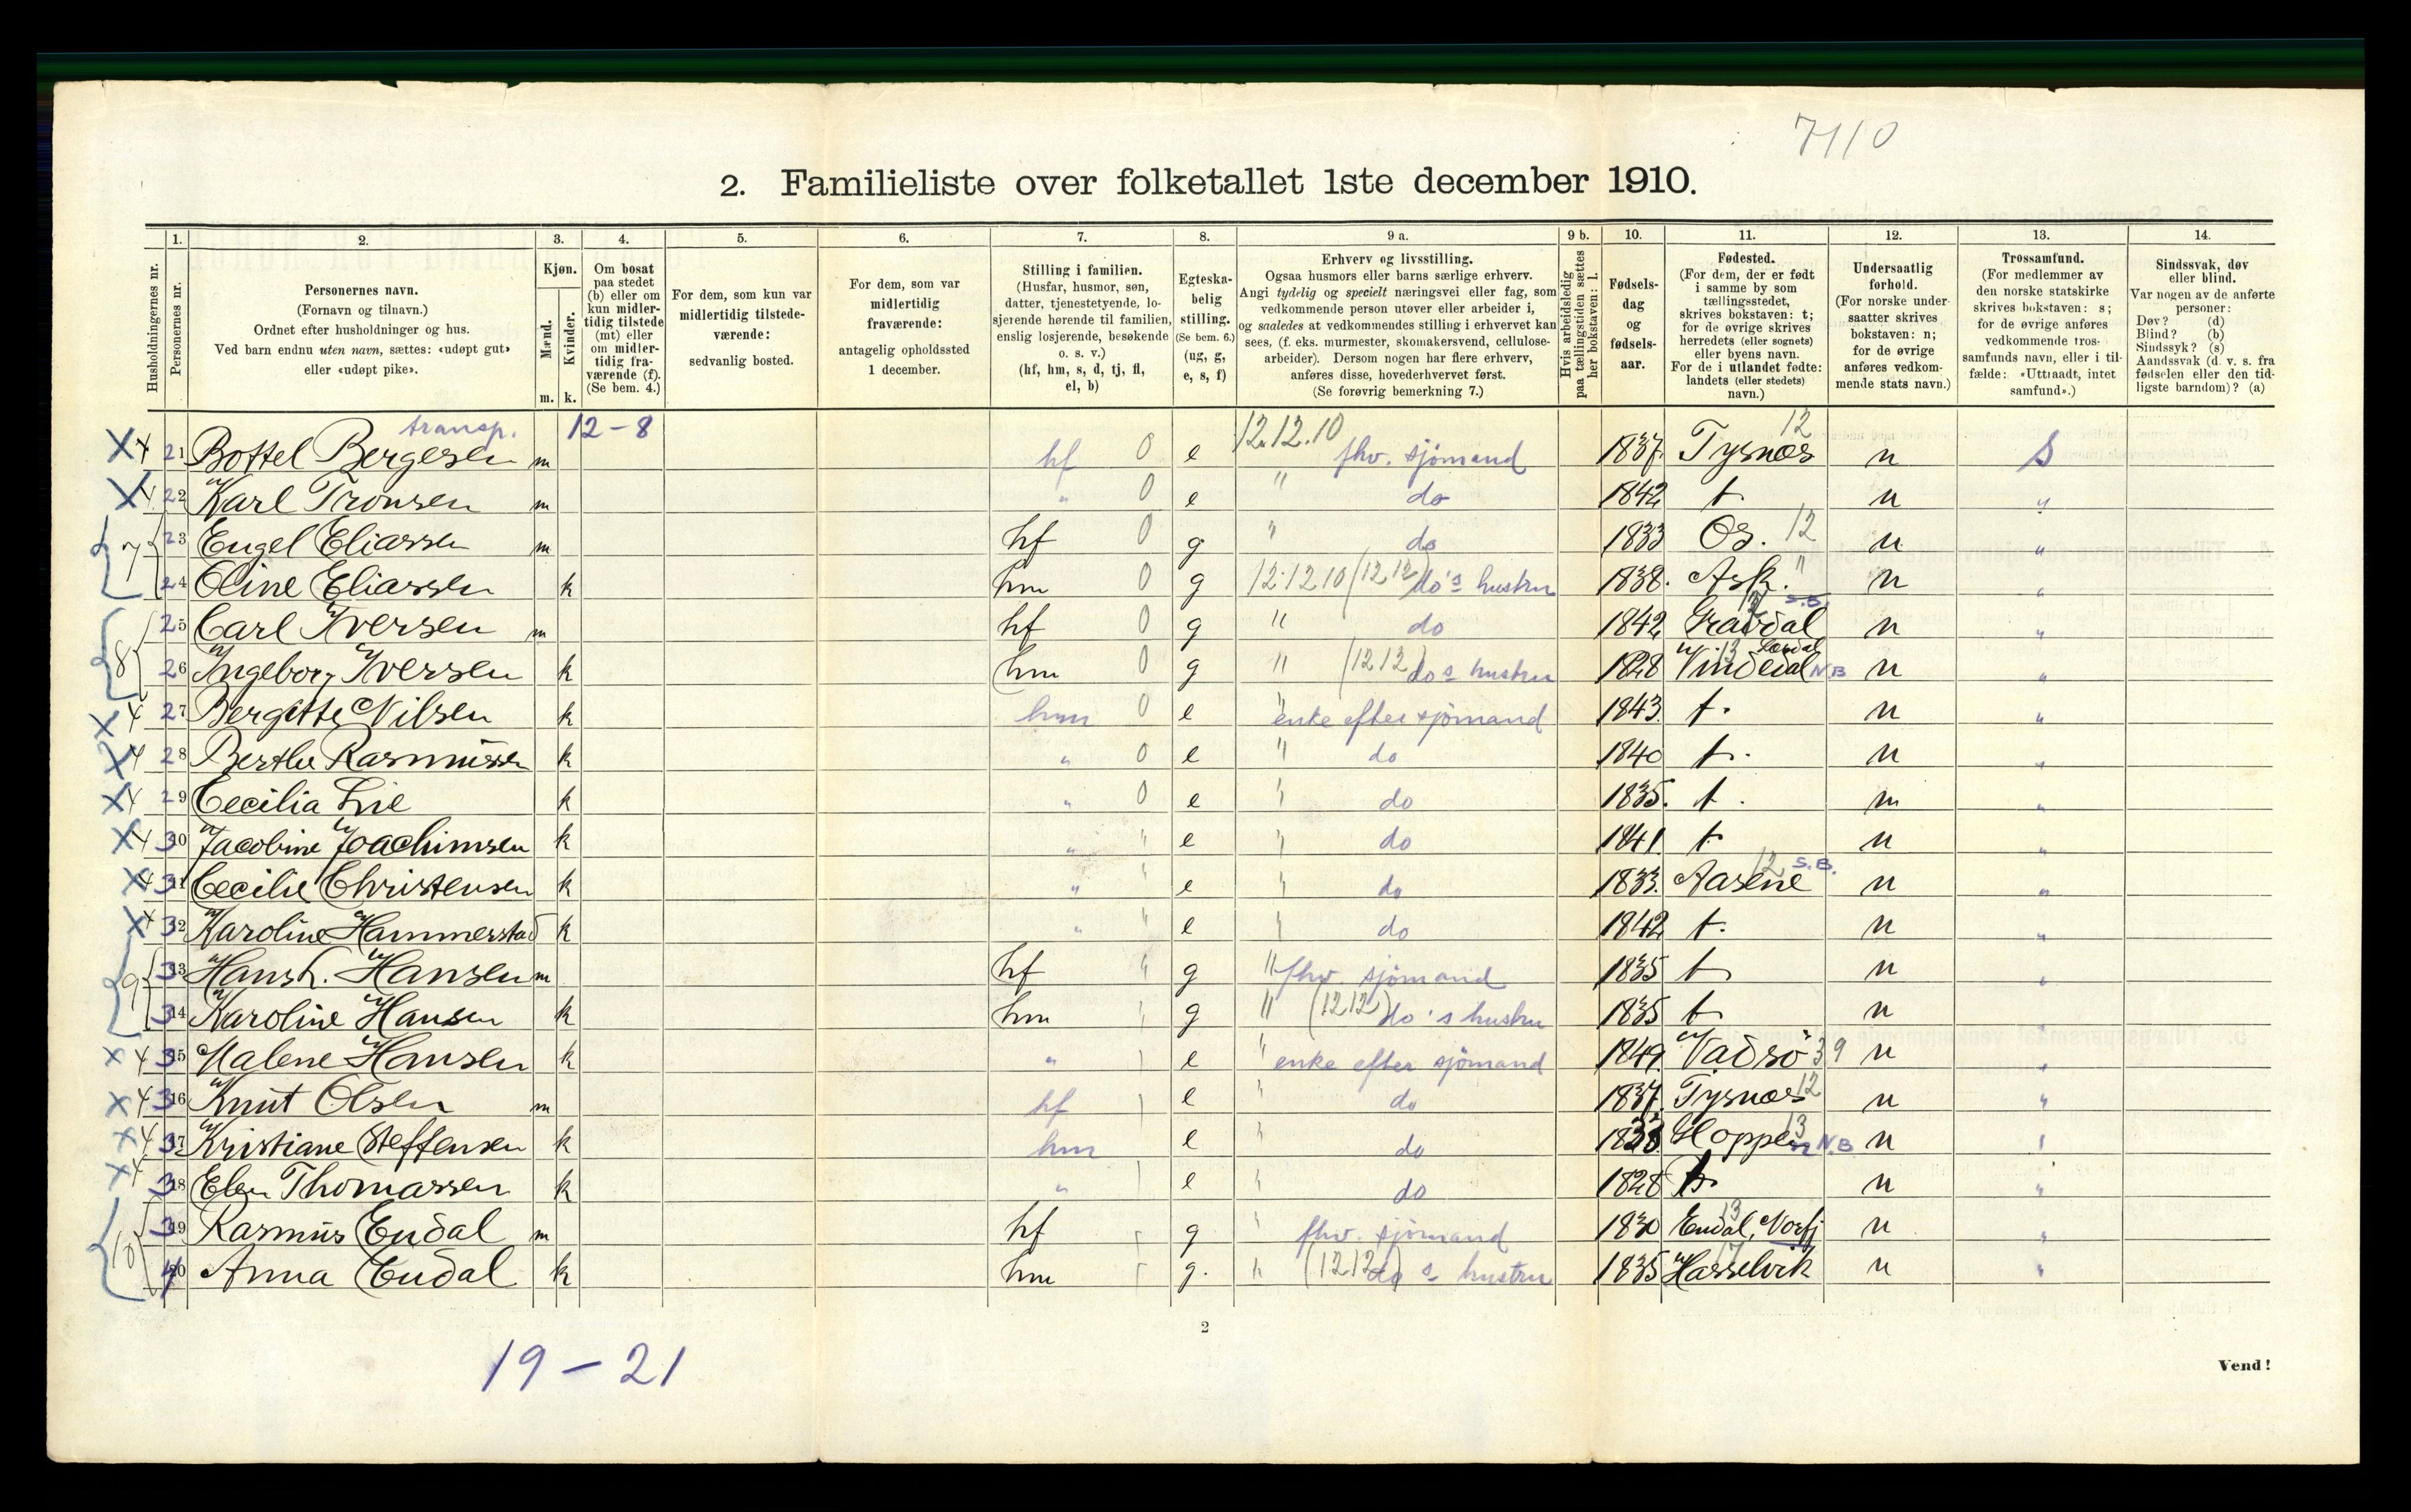 7110
2. Familieliste over folketallet 1ste december 1910.
1. 2. 3. 4. 5. 6. 7. 8. 9 a. 9 b. 10. 11. 12. 13. 14.
Husholdningernes nr.
Personernes nr.
Personernes navn.
(Fornavn og tilnavn.)
Ordnet efter husholdninger og hus.
Ved barn endnu uten navn, sættes: «udøpt gut»
eller «udøpt pike».
Kjøn.
Mænd.
Kvinder.
m. k.
Om bosat
paa stedet
(b) eller om
kun midler-
tidig tilstede
(mt) eller
om midler-
tidig fra-
værende (f).
(Se bem. 4.)
For dem, som kun var
midlertidig tilstede-
værende:
sedvanlig bosted.
For dem, som var
midlertidig
fraværende:
antagelig opholdssted
1 december.
Stilling i familien.
(Husfar, husmor, søn,
datter, tjenestetyende, lo-
sjerende hørende til familien,
enslig losjerende, besøkende
o. s. v.)
(hf, hm, s, d, tj, fl,
el, b)
Egteska-
belig
stilling.
(Se bem. 6.)
(ug, g,
e, s, f)
Erhverv og livsstilling.
Ogsaa husmors eller barns særlige erhverv.
Angi tydelig og specielt næringsvei eller fag, som
vedkommende person utøver eller arbeider i,
og saaledes at vedkommendes stilling i erhvervet kan
sees, (f. eks. murmester, skomakersvend, cellulose-
arbeider). Dersom nogen har flere erhverv,
anføres disse, hovederhvervet først.
(Se forøvrig bemerkning 7.)
Hvis arbeidsledig
paa tællingstiden sættes
her bokstaven: l.
Fødsels-
dag
og
fødsels-
aar.
Fødested.
(For dem, der er født
i samme by som
tællingsstedet,
skrives bokstaven: t;
for de øvrige skrives
herredets (eller sognets)
eller byens navn.
For de i utlandet fødte:
landets (eller stedets)
navn.)
Undersaatlig
forhold.
(For norske under-
saatter skrives
bokstaven: n;
for de øvrige
anføres vedkom-
mende stats navn.)
Trossamfund.
(For medlemmer av
den norske statskirke
skrives bokstaven: s;
for de øvrige anføres
vedkommende tros-
samfunds navn, eller i til-
fælde: «Uttraadt, intet
samfund».)
Sindssvak, døv
eller blind.
Var nogen av de anførte
personer:
Døv? (d)
Blind? (b)
Sindssyk? (s)
Aandssvak (d. v. s. fra
fødselen eller den tid-
ligste barndom)? (a)
transp. 12-8
X 4 21 Bottel Bergesen m hf 0 e 12.12.10 fhv. sjömand 1837. Tysnæs 12 n S
X 4 22 Karl Tronsen m " 0 e " do 1842 t n "
7 23 Engel Eliassen m hf 0 g " do 1833 Os. 12 n "
24 Oline Eliassen k hm 0 g 12.12.10 (12 12) do's hustru 1838. Ask. " n "
8 25 Carl Iversen m hf 0 g " do 1842 Gravdal 12 S.B. n "
26 Ingeborg Iversen k hm 0 g " (12 12) do s hustru 1828 Vindeid 13 N B n "
X 4 27 Bergitte Nilsen k hm 0 e " enke efter sjömand 1843. t. n "
X 4 28 Berthe Rasmussen k " 0 e " do 1840 t. n "
X 4 29 Cecilia Lie k " 0 e " do 1835. t. n "
X 4 30 Jacobine Joachimsen k " " e " do 1841. t n "
X 4 31 Cecilie Christensen k " " e " do 1833. Aasene 12 S.B. n "
X 4 32 Karoline Hammerstad k " " e " do 1842 t. n "
9 33 Hans L. Hansen m hf " g " fhv. sjömand 1835 t n "
34 Karoline Hansen k hm " g " (12 12) do's hustru 1835 t n "
X 4 35 Malene Hansen k " " e " enke efter sjömand 1849. Vadsö 39 n "
X 4 36 Knut Olsen m hf " e " do 1837. Tysnæs 12 n "
X 4 37 Kristiane Steffensen k hm e " do 1838. Hoppe 13 N.B n "
X 4 38 Elen Thomassen k " " e " do 1828 t. n "
10 39 Rasmus Endal m hf " g " fhv. sjömand 1830 Endal, Norfj 13 n "
40 Anna Endal k hm " g. " (12 12) do s hustru 1835 Hasselvik 17 n "
2
19-21
Vend!